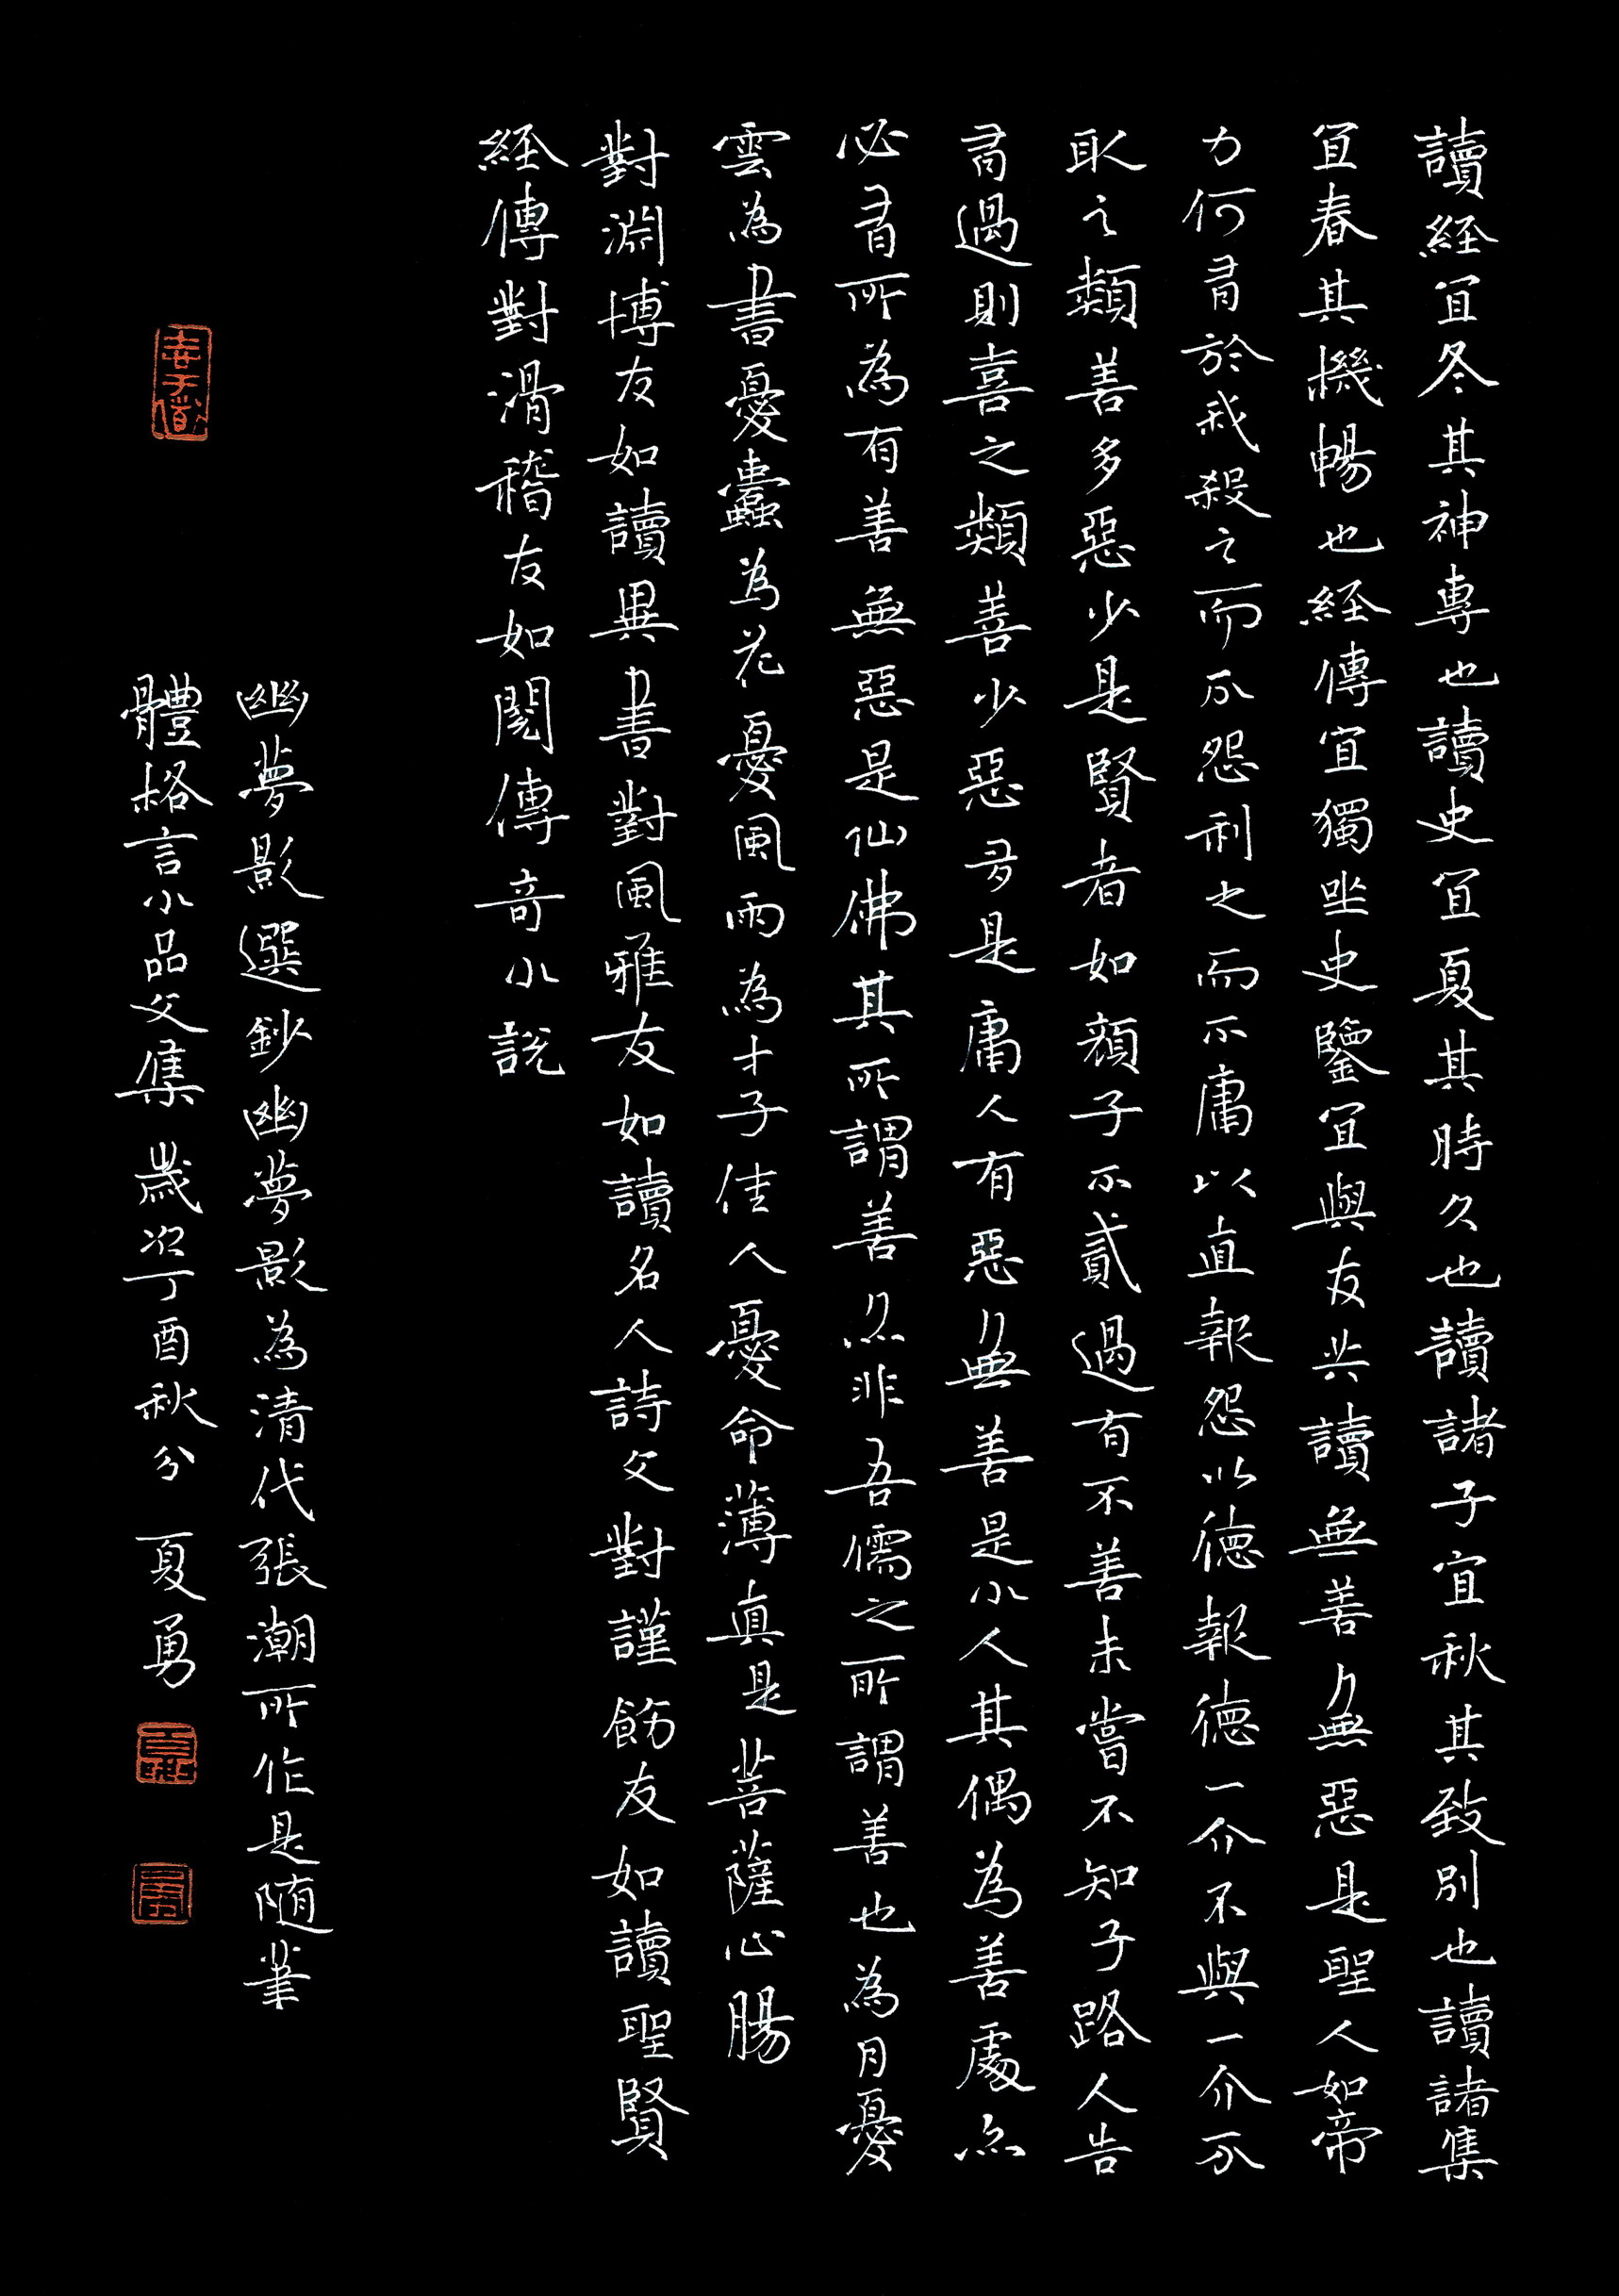 讀経宜冬其神專也讀史宜夏其時久也讀諸子宜秋其致別也讀諸集
宜春其機暢也経傳宜獨坐史鑒宜與友共讀無善無惡是聖人如帝
力何有於我殺之而不怨利之而不庸以直報怨以德報德一介不與一介不
取之類善多惡少是賢者如顏子不貳過有不善未嘗不知子路人告
有過則喜之類善少惡多是庸人有惡無善是小人其偶為善處亦
必有所為有善無惡是仙佛其所謂善亦非吾儒之所謂善也為月憂
雲為書憂蠹為花憂風雨為才子佳人憂命薄真是菩薩心腸
對淵博友如讀異書對風雅友如讀名人詩文對謹飭友如讀聖賢
経傳對滑稽友如閱傳奇小說
幽夢影選鈔幽夢影為清代張潮所作是隨筆
體格言小品文集 歲次丁酉秋分 夏勇